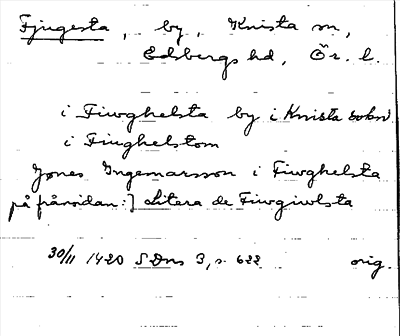 Fjugesta, by, Knista sn,
Edsbergs hd, Ör. l.
i Fiwghelsta by i Knista sokn
i Fiughelstom
Jones Ingemarsson i Fiwghelsta
på frånsidan:] Litera de Fiwgiwlsta
30/11 1420 SDns 3, s. 622 orig.